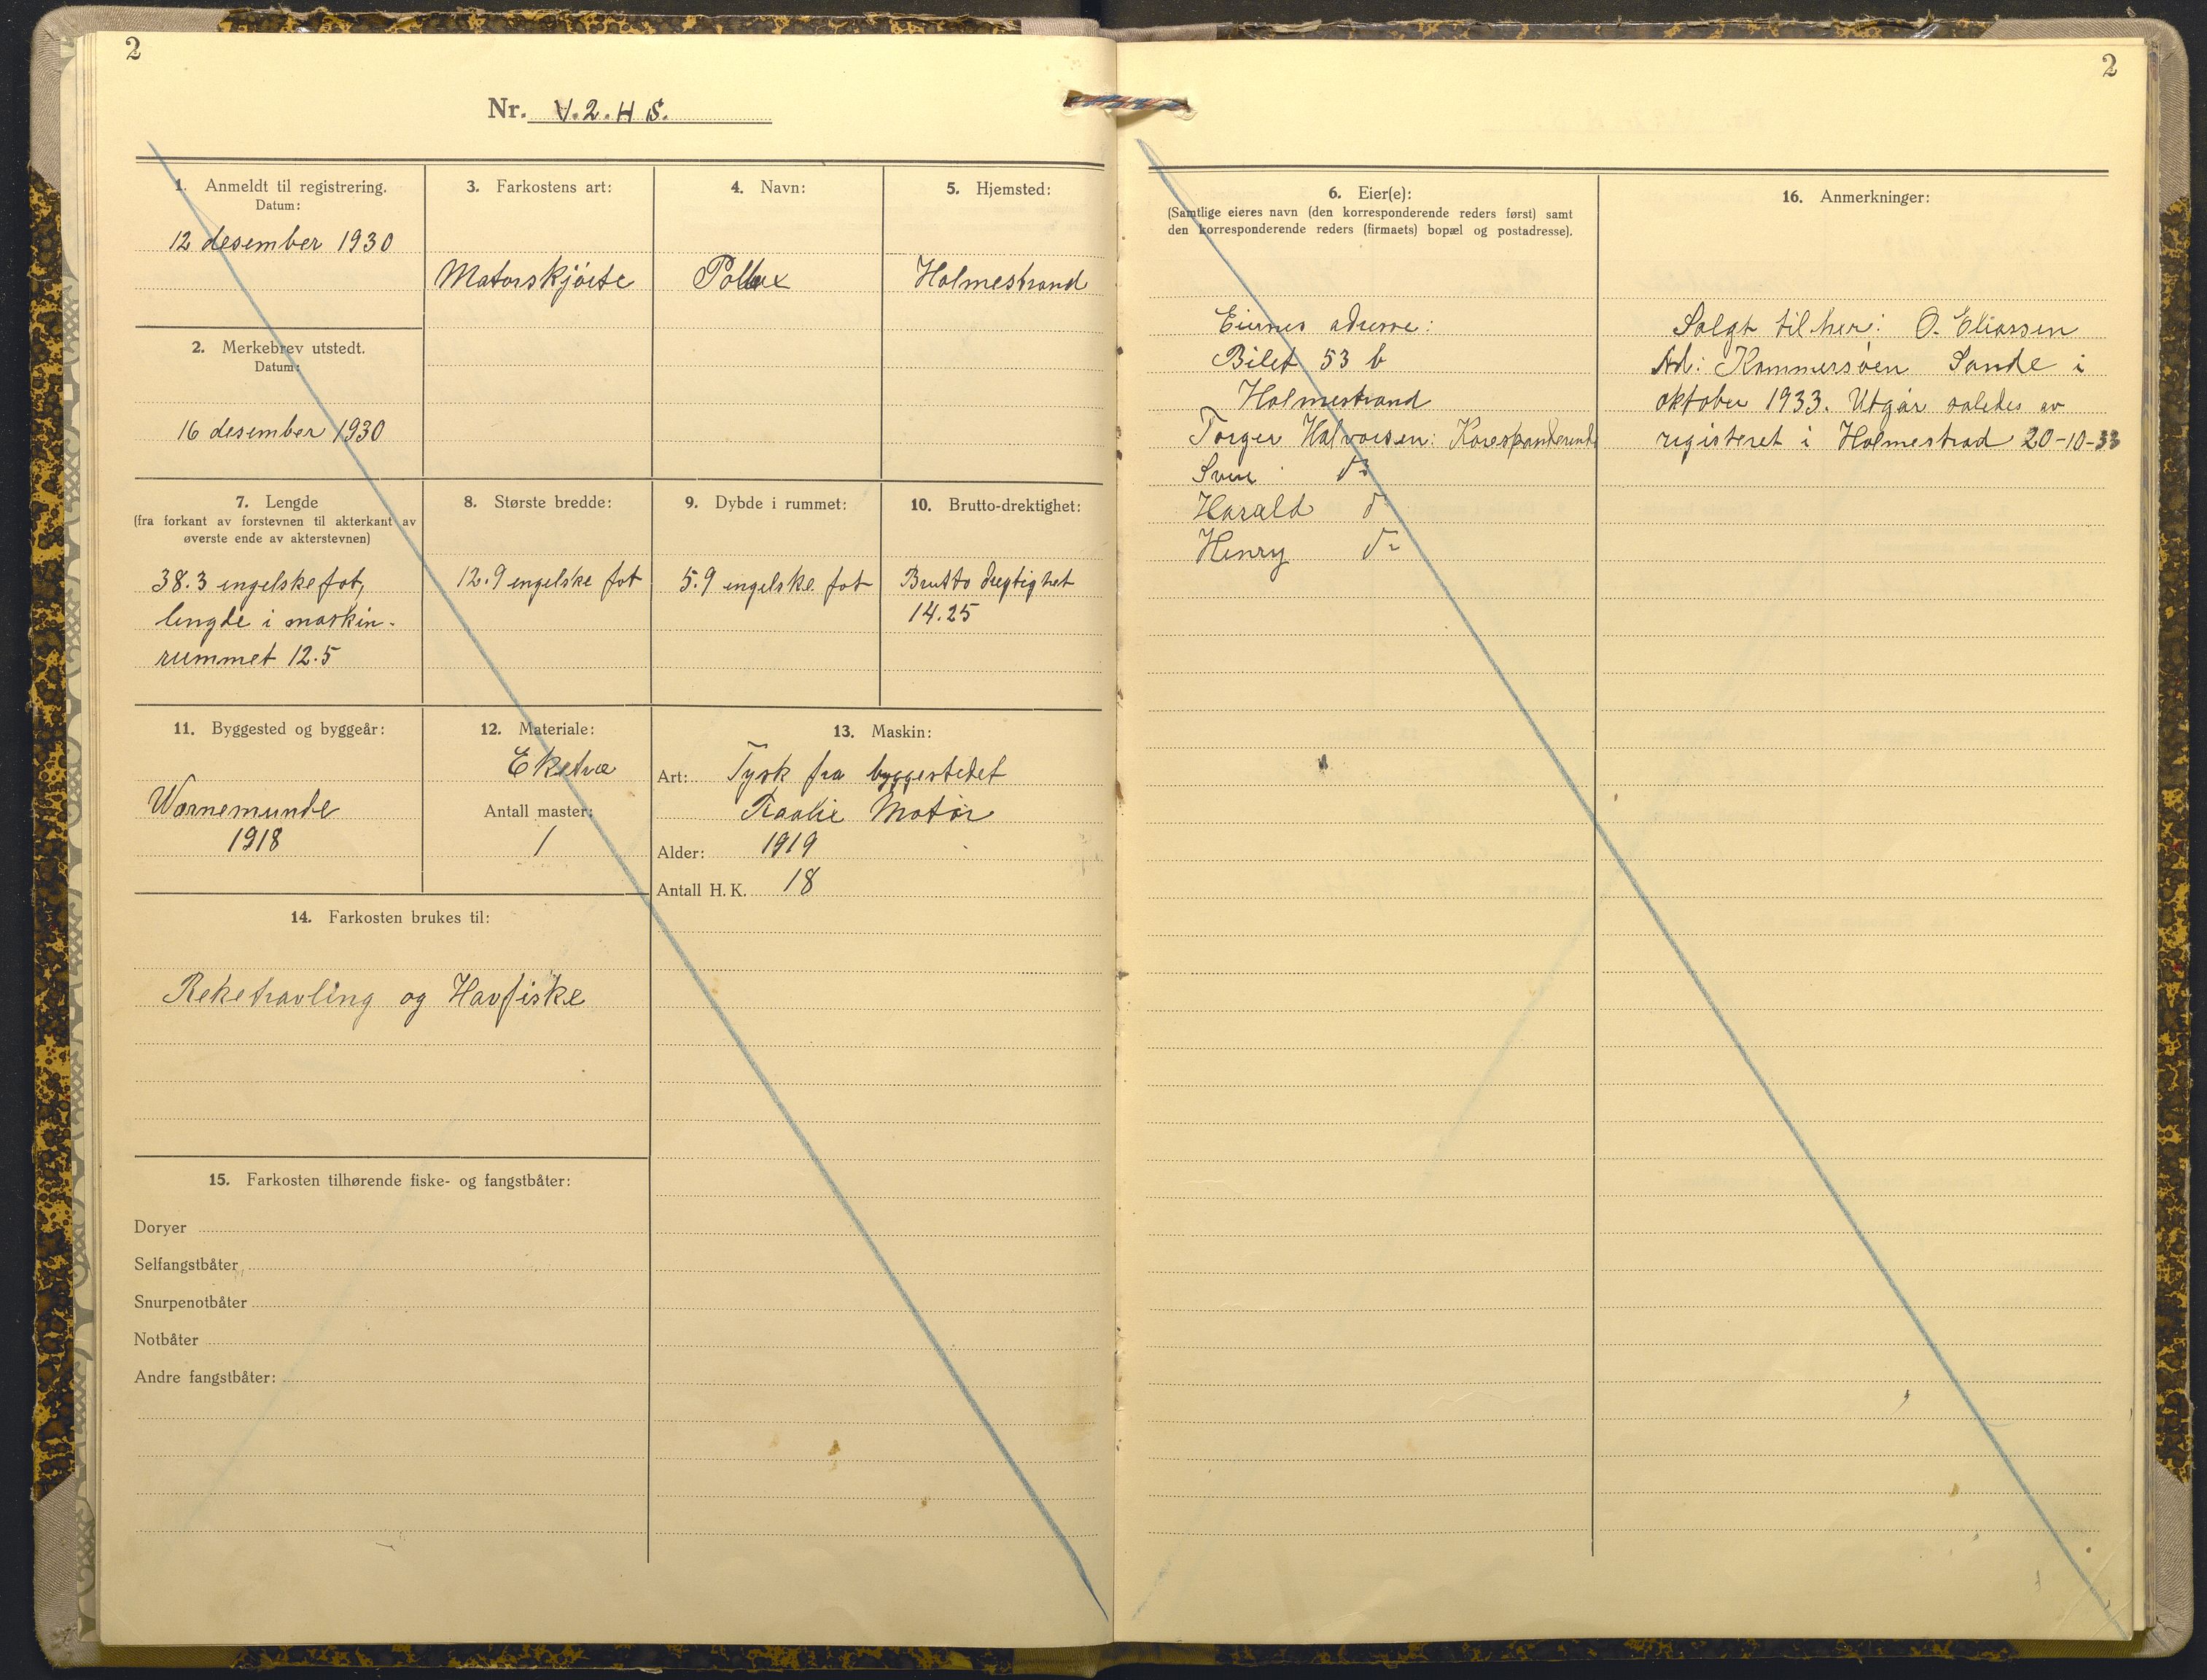 2
Nr. V.2.H S.
1. Anmeldt til registrering.
Datum:
12 desember 1930
2. Merkebrev utstedt.
Datum:
16 desember 1930
3. Farkostens art:
Motorskjöite
4. Navn:
Pollux
5. Hjemsted:
Holmestrand
7. Lengde
(fra forkant av forstevnen til akterkant av
øverste ende av akterstevnen)
38.3 engelske fot,
lengde i maskin-
rummet 12.5
8. Største bredde:
12.9 engelske fot
9. Dybde i rummet:
5.9 engelske fot
10. Brutto-drektighet:
Brutto dregtighet
14.25
11. Byggested og byggeår:
Warnemunde
1918
12. Materiale:
Eketræ
Antall master:
1
13. Maskin:
Art: Tysk fra byggestedet
Motor
Alder: 1919
Antall H. K. 18
14. Farkosten brukes til:
Reketravling og Havfiske
15. Farkosten tilhørende fiske- og fangstbåter:
Doryer
Selfangstbåter
Snurpenotbåter
Notbåter
Andre fangstbåter:
2
6. Eier(e):
(Samtlige eieres navn (den korresponderende reders først) samt
den korresponderende reders (firmaets) bopæl og postadresse).
Eiernes adresse:
Bilet 53 b
Holmestrand
Torger Halvorsen: Korespanderende
Sven do
Harald do
Henry do
16. Anmerkninger:
Solgt til her: O. Eliassen
Ad: Kommersöen Sande i
oktober 1933. Utgår saledes av
registeret i Holmestrad 20-10-33